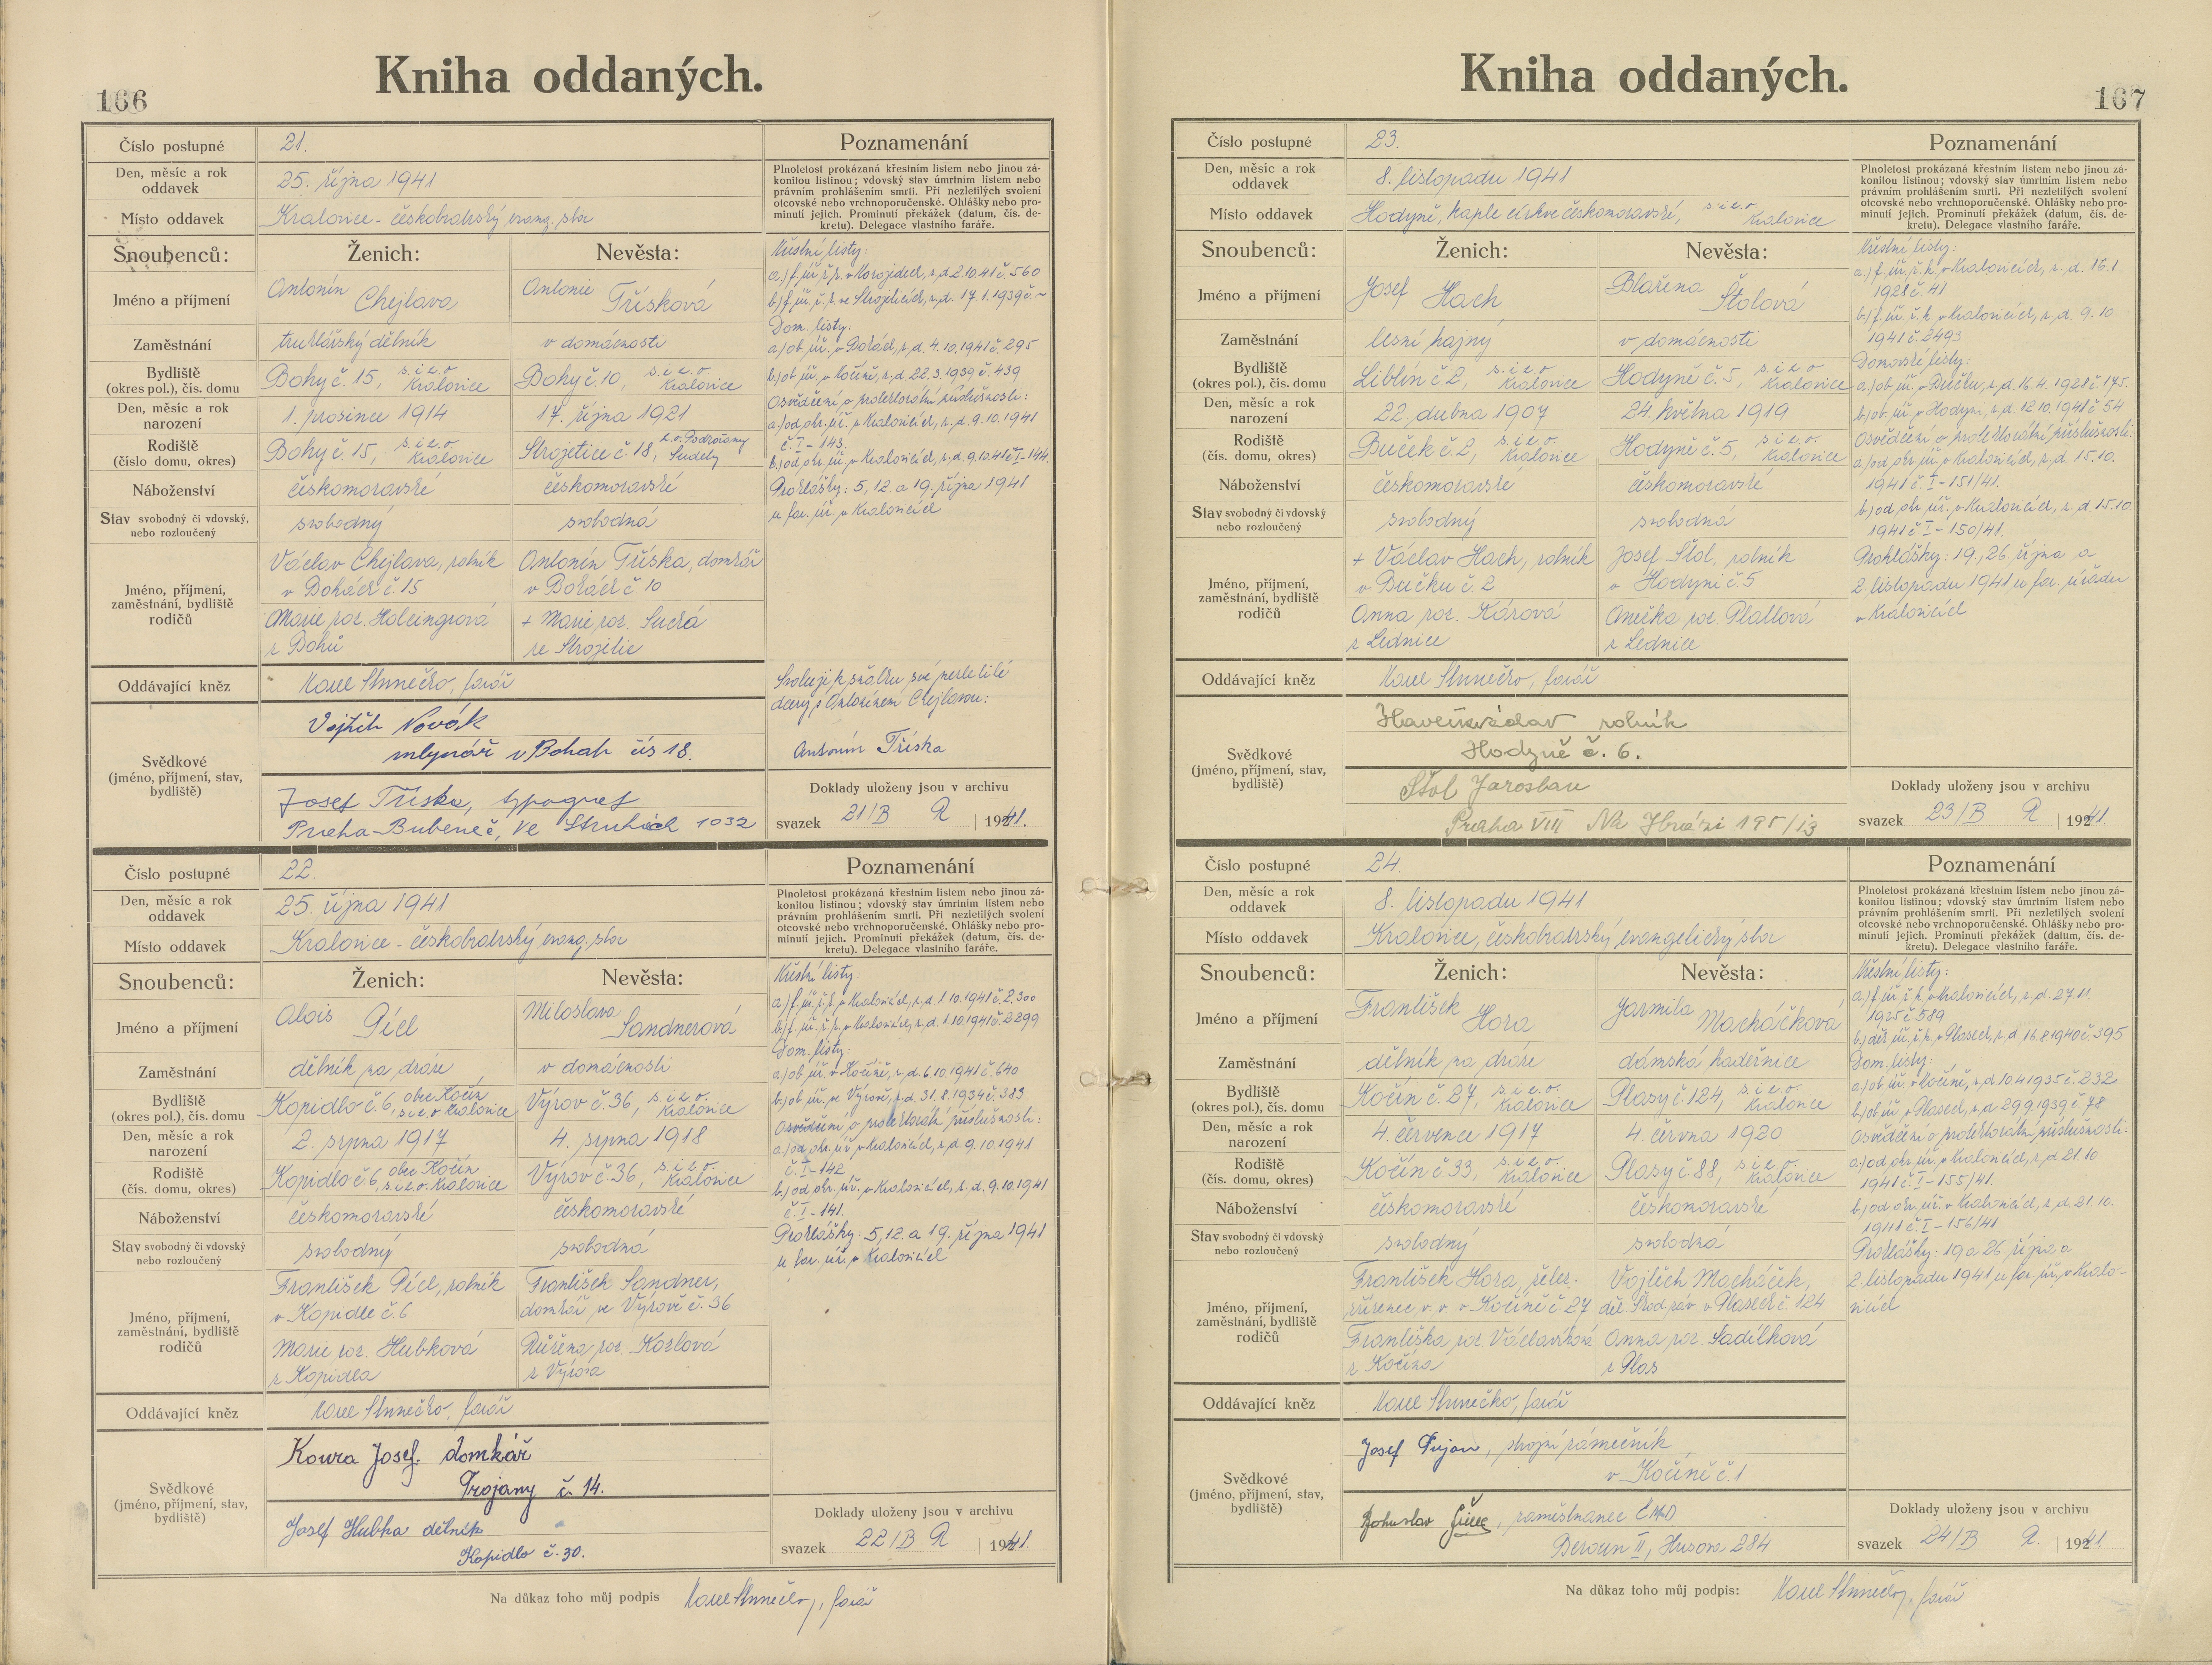 166
Kniha oddaných.
Číslo postupné 21.
Den, měsíc a rok oddavek 25. října 1941
Místo oddavek Kralovice - českobratrský evang. sbor
Poznamenání
Plnoletost prokázaná křestním listem nebo jinou zá-
konitou listinou; vdovský stav úmrtním listem nebo
právním prohlášením smrti. Při nezletilých svolení
otcovské nebo vrchnoporučenské. Ohlášky nebo pro-
minutí jejich. Prominutí překážek (datum, čís. de-
kretu). Delegace vlastního faráře.
Snoubenců: Ženich: Nevěsta:
Jméno a příjmení Antonín Chejlava Antonie Třísková
Zaměstnání truhlářský dělník v domácnosti
Bydliště (okres pol.), čís. domu Bohy č. 15, s. i e. o. Kralovice Bohy č. 10, s. i e. o. Kralovice
Den, měsíc a rok narození 1. prosince 1914 17. října 1921
Rodiště (číslo domu, okres) Bohy č. 15, s. i e. o. Kralovice Strojetice č. 18, Sudety
Náboženství českomoravské českomoravské
Stav svobodný či vdovský, nebo rozloučený svobodný svobodná
Jméno, příjmení, zaměstnání, bydliště rodičů
Václav Chejlava, rolník Antonín Tříska, domkář
v Bohách č. 15 v Bohách č. 10
Marie roz. Holeingrová + Marie roz. Suchá
z Bohů ze Strojetic
Křestní listy:
Dom. listy:
a.) ob. úř. v Bohách, z. d. 4. 10. 1941 č. 295
b.) ob. úř. v Kočíně, z. d. 22. 3. 1939 č. 439
Osvědčení o protektorátní příslušnosti:
a.) od okr. úř. v Kralovicích, z. d. 9. 10. 1941
č. I - 143.
b.) od okr. úř. v Kralovicích, z. d. 9. 10. 41 č. I - 144.
Prohlášky: 5, 12. a 19. října 1941
u far. úř. v Kralovicích
Oddávající kněz farář
Svoluji k sňatku své nezletilé
dcery s Antonínem Chejlavou:
Antonín Tříska
Svědkové (jméno, příjmení, stav, bydliště)
Vojtěch Novák
mlynář v Bohách čís 18.
Josef Tříska, typograf
Praha-Bubeneč, Ve Struhách 1032
Doklady uloženy jsou v archivu
svazek 21/B R 1941.
Číslo postupné 22.
Den, měsíc a rok oddavek 25. října 1941
Místo oddavek Kralovice - českobratrský evang. sbor
Poznamenání
Plnoletost prokázaná křestním listem nebo jinou zá-
konitou listinou; vdovský stav úmrtním listem nebo
právním prohlášením smrti. Při nezletilých svolení
otcovské nebo vrchnoporučenské. Ohlášky nebo pro-
minutí jejich. Prominutí překážek (datum, čís. de-
kretu). Delegace vlastního faráře.
Snoubenců: Ženich: Nevěsta:
Jméno a příjmení Alois Pícl Miloslava Sandnerová
Zaměstnání dělník na dráze v domácnosti
Bydliště (okres pol.), čís. domu Kopidlo č. 6, obec Kočín s. i e. o. Kralovice Výrov č. 36, s. i e. o. Kralovice
Den, měsíc a rok narození 2. srpna 1917 4. srpna 1918
Rodiště (čís. domu, okres) Kopidlo č. 6, obec Kočín s. i e. o. Kralovice Výrov č. 36, s. i e. o. Kralovice
Náboženství českomoravské českomoravské
Stav svobodný či vdovský nebo rozloučený svobodný svobodná
Jméno, příjmení, zaměstnání, bydliště rodičů
František Pícl, rolník František Sandner,
v Kopidle č. 6 domkář ve Výrově č. 36
Marie roz. Hubková Růžena roz. Kozlová
z Kopidla z Výrova
Křestní listy:
a.) f. úř. ř. k. v Kralovicích, z. d. 1. 10. 1941 č. 2300
b.) f. úř. ř. k. v Kralovicích, z. d. 1. 10. 1941 č. 2299
Dom. listy:
a.) ob. úř. v Kočíně, z. d. 6. 10. 1941 č. 640
b.) ob. úř. ve Výrově, z. d. 31. 8. 1934 č. 383
Osvědčení o protektorátní příslušnosti:
a.) od okr. úř. v Kralovicích, z. d. 9. 10. 1941
č. I - 142
b.) od okr. úř. v Kralovicích, z. d. 9. 10. 1941
č. I - 141.
Prohlášky: 5, 12. a 19. října 1941
u far. úř. v Kralovicích
Oddávající kněz farář
Svědkové (jméno, příjmení, stav, bydliště)
Koura Josef. domkář
Trojany č. 14.
Josef Hubka dělník
Kopidlo č. 30.
Doklady uloženy jsou v archivu
svazek 22/B R 1941.
Na důkaz toho můj podpis farář
Kniha oddaných.
167
Číslo postupné 23.
Den, měsíc a rok oddavek 8. listopadu 1941
Místo oddavek Hodyně, kaple církve českomoravské, s. i e. o. Kralovice
Poznamenání
Plnoletost prokázaná křestním listem nebo jinou zá-
konitou listinou; vdovský stav úmrtním listem nebo
právním prohlášením smrti. Při nezletilých svolení
otcovské nebo vrchnoporučenské. Ohlášky nebo pro-
minutí jejich. Prominutí překážek (datum, čís. de-
kretu). Delegace vlastního faráře.
Snoubenců: Ženich: Nevěsta:
Jméno a příjmení Josef Hach Blažena Štolová
Zaměstnání lesní hajný v domácnosti
Bydliště (okres pol.), čís. domu Liblín č. 2, s. i e. o. Kralovice Hodyně č. 5, s. i e. o. Kralovice
Den, měsíc a rok narození 22. dubna 1907 24. května 1919
Rodiště (čís. domu, okres) Buček č. 2, s. i e. o. Kralovice Hodyně č. 5, s. i e. o. Kralovice
Náboženství českomoravské českomoravské
Stav svobodný či vdovský nebo rozloučený svobodný svobodná
Jméno, příjmení, zaměstnání, bydliště rodičů
+ Václav Hach, rolník Josef Štol, rolník
v Bučku č. 2 v Hodyni č. 5
Anna roz. Kárová Anežka roz. Plattová
z Lednice z Lednice
Křestní listy:
a.) f. úř. ř. k. v Kralovicích, z. d. 16. 1.
1928 č. 41
b.) f. úř. ř. k. v Kralovicích, z. d. 9. 10.
1941 č. 2493
Domovské listy:
a.) ob. úř. v Bučku, z. d. 16. 4. 1928 č. 175.
b.) ob. úř. v Hodyni, z. d. 12. 10. 1941 č. 54
Osvědčení o protektorátní příslušnosti:
a.) od okr. úř. v Kralovicích, z. d. 15. 10.
1941 č. I - 151/41.
b.) od okr. úř. v Kralovicích, z. d. 15. 10.
1941 č. I - 150/41.
Prohlášky: 19., 26. října a
2. listopadu 1941 u far. úřadu
v Kralovicích
Oddávající kněz farář
Svědkové (jméno, příjmení, stav, bydliště)
rolník
Hodyně č. 6.
Štol Jaroslav
Praha VIII Na Hrázi
Doklady uloženy jsou v archivu
svazek 23/B R 1941.
Číslo postupné 24.
Den, měsíc a rok oddavek 8. listopadu 1941
Místo oddavek Kralovice, českobratrský evangelický sbor
Poznamenání
Plnoletost prokázaná křestním listem nebo jinou zá-
konitou listinou; vdovský stav úmrtním listem nebo
právním prohlášením smrti. Při nezletilých svolení
otcovské nebo vrchnoporučenské. Ohlášky nebo pro-
minutí jejich. Prominutí překážek (datum, čís. de-
kretu). Delegace vlastního faráře.
Snoubenců: Ženich: Nevěsta:
Jméno a příjmení František Hora Jarmila Macháčková
Zaměstnání dělník na dráze dámská kadeřnice
Bydliště (okres pol.), čís. domu Kočín č. 27, s. i e. o. Kralovice Plasy č. 124, s. i e. o. Kralovice
Den, měsíc a rok narození 4. července 1917 4. června 1920
Rodiště (čís. domu, okres) Kočín č. 33, s. i e. o. Kralovice Plasy č. 88, s. i e. o. Kralovice
Náboženství českomoravské českomoravské
Stav svobodný či vdovský nebo rozloučený svobodný svobodná
Jméno, příjmení, zaměstnání, bydliště rodičů
František Hora, želez. Vojtěch Macháček,
zřízenec v. v. v Kočíně č. 27 děl. Škod. záv. v Plasech č. 124
Františka roz. Václavíková Anna roz. Sadílková
z Kočína z Plas
Křestní listy:
a.) f. úř. ř. k. v Kralovicích, z. d. 27. 11.
1925 č. 589
b.) děk. úř. ř. k. v Plasech, z. d. 16. 8. 1940 č. 395
Dom. listy:
a.) ob. úř. v Kočíně, z. d. 10. 4. 1935 č. 232
b.) ob. úř. v Plasech, z. d. 29. 9. 1939 č. 78
Osvědčení o protektorátní příslušnosti:
a.) od okr. úř. v Kralovicích, z. d. 21. 10.
1941 č. I - 155/41.
b.) od okr. úř. v Kralovicích, z. d. 21. 10.
1941 č. I - 156/41
Prohlášky: 19. a 26. října a
2. listopadu 1941 u far. úř. v Kralo-
vicích
Oddávající kněz farář
Svědkové (jméno, příjmení, stav, bydliště)
Josef strojní zámečník
v Kočíně č. 1
Bohuslav zaměstnanec ČMD
Beroun II, Husova 284
Doklady uloženy jsou v archivu
svazek 24/B R. 1941.
Na důkaz toho můj podpis: farář